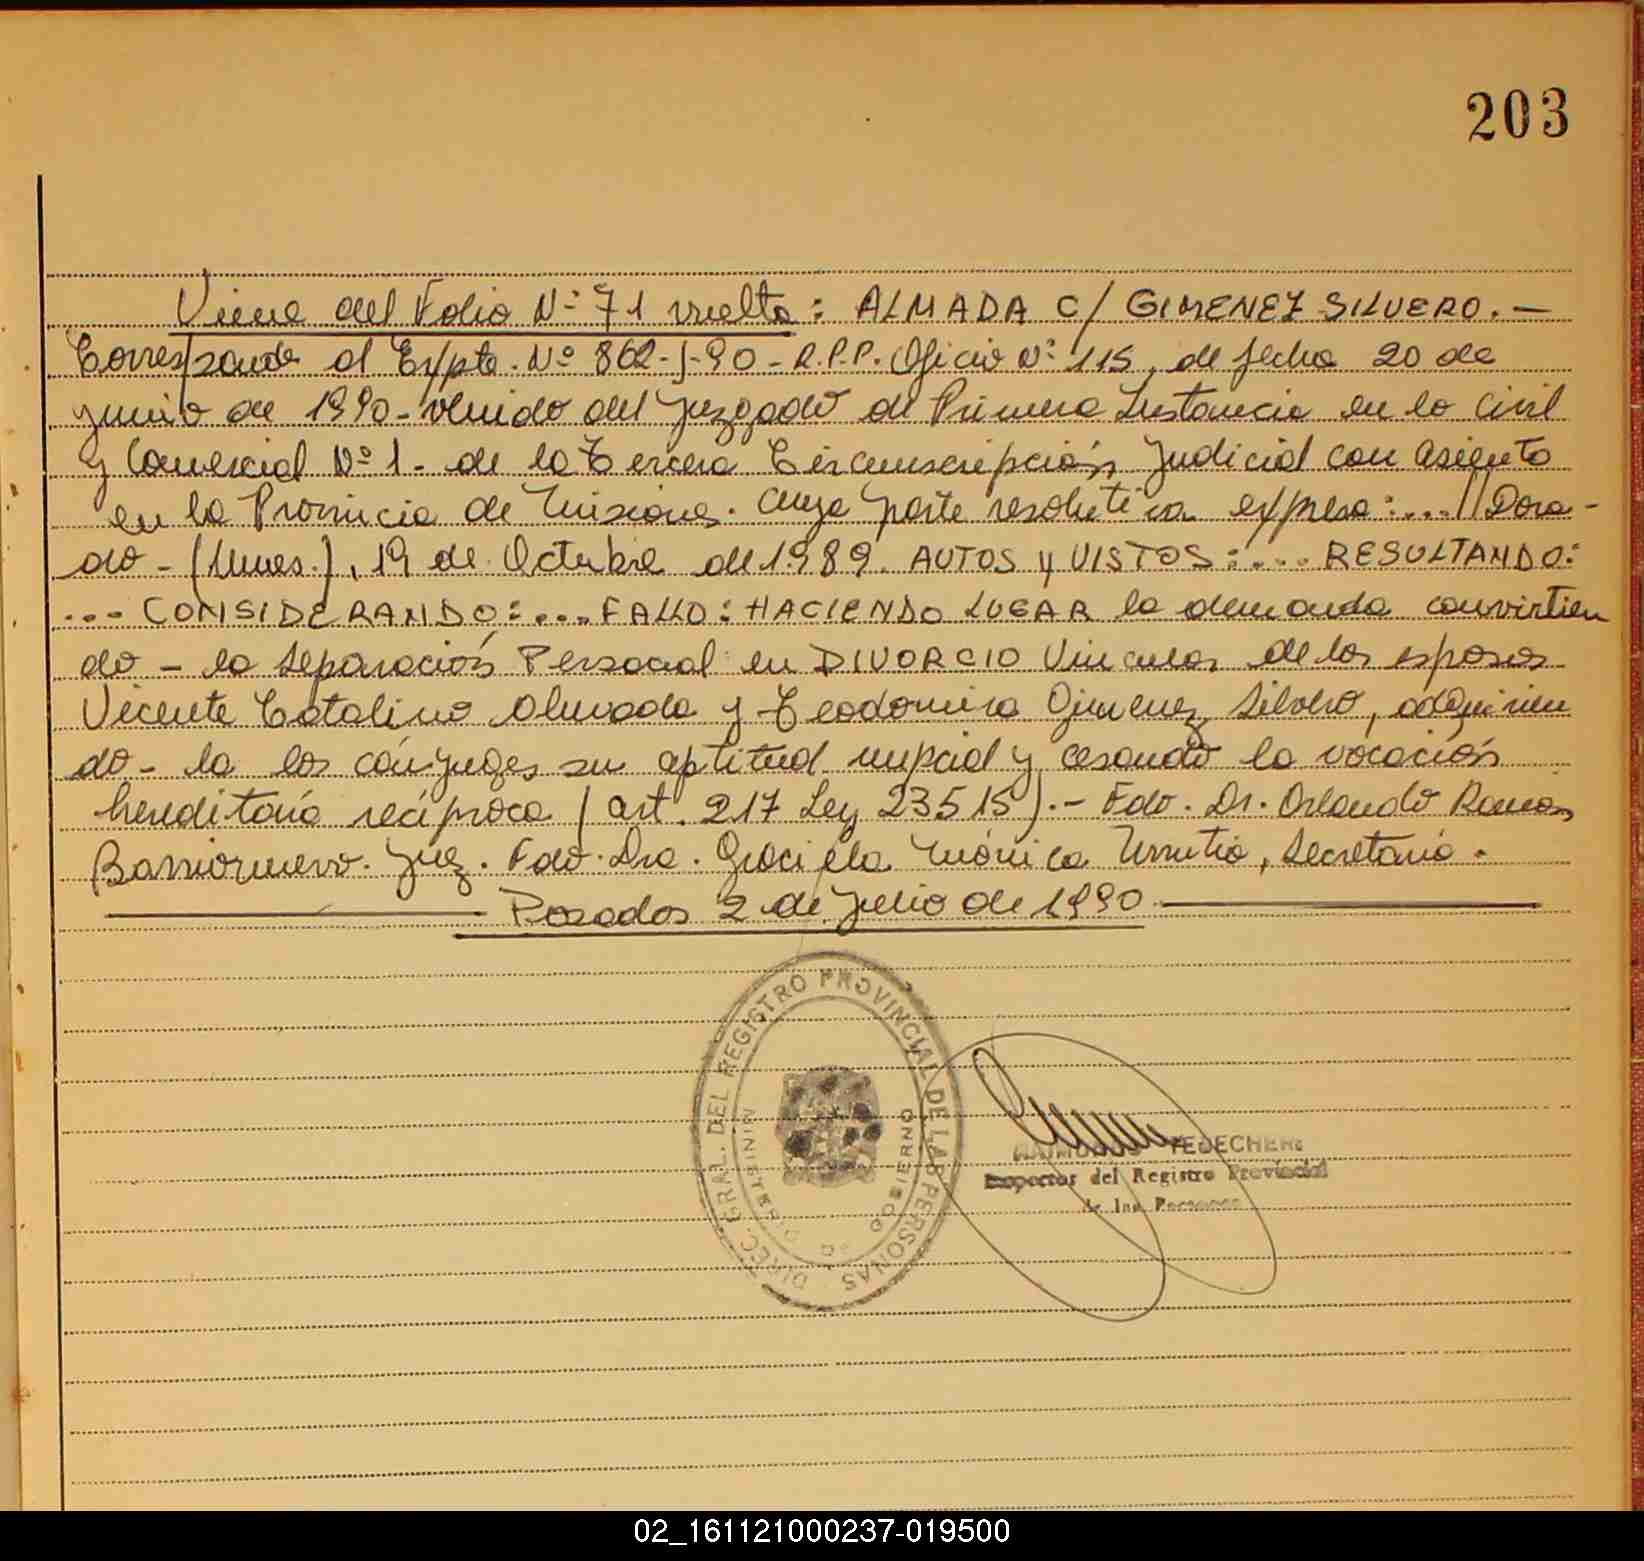 203
Viene del Folio Nº 71 vuelta: ALMADA C/ GIMENEZ SILVERO. —
Corresponde al Expte. Nº 862-J-90 - R.P.P. Oficio Nº 115, de fecha 20 de
junio de 1990 - venido del Juzgado de Primera Instancia en lo Civil
y Comercial Nº 1. de la Tercera Circunscripción Judicial con asiento
en la Provincia de Misiones. Cuya parte resolutiva expresa: .... //Dora-
do - (Mnes.), 19 de Octubre de 1989. AUTOS y VISTOS: .... RESULTANDO:
... CONSIDERANDO: .... FALLO: HACIENDO LUGAR la demanda convirtien
do - la Separación Personal en DIVORCIO Vincular de los esposos
Vicente Catalino Almada y Teodomira Gimenez Silvero, adquirien
do - la los cónyuges su aptitud nupcial y cesando la vocación
hereditaria recíproca (art. 217 Ley 23515). - Fdo. Dr. Orlando Ramón
Barrionuevo. Juez. Fdo. Dra. Graciela Mónica Urrutia, Secretaria.
Posadas 2 de Julio de 1990
DIREC. GRAL. DEL REGISTRO PROVINCIAL DE LAS PERSONAS
MINISTERIO DE GOBIERNO
RAIMUNDO TEDECHERI
Inspector del Registro Provincial
de las Personas
02_161121000237-019500